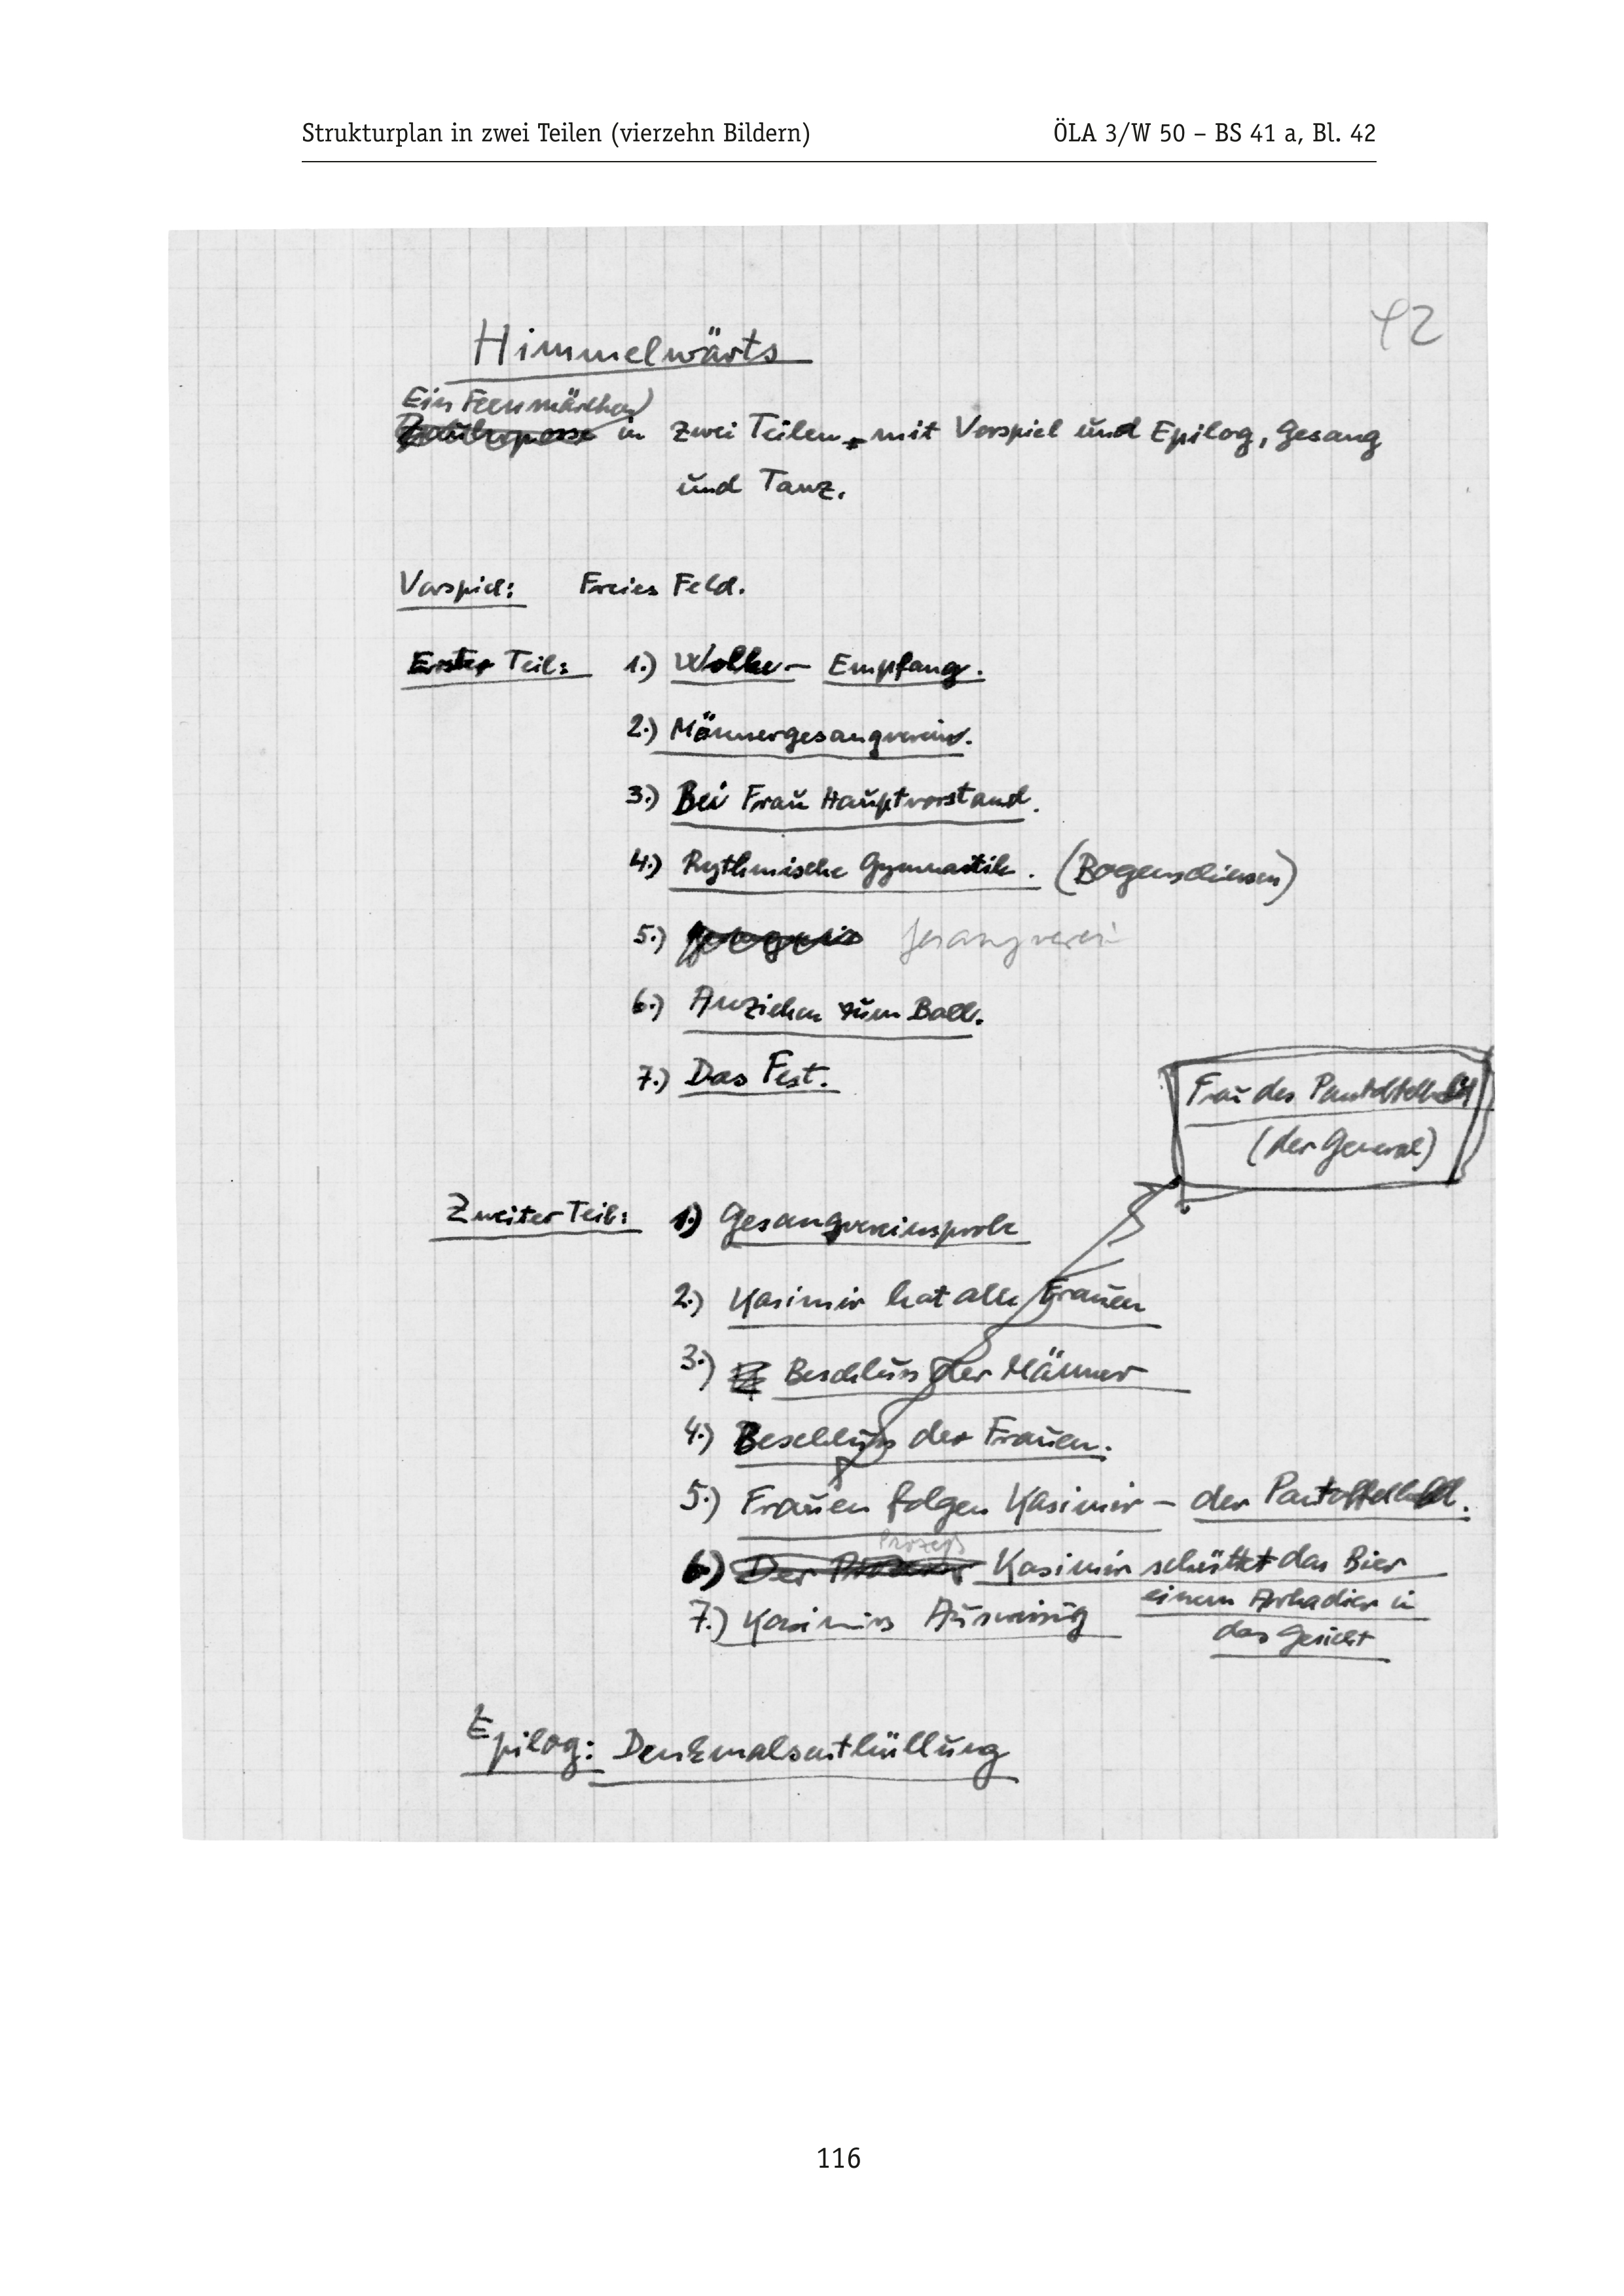 Strukturplan in zwei Teilen (vierzehn Bildern) ÖLA 3/W 50 – BS 41 a, Bl. 42
42
Himmelwärts
Ein Feenmärchen
Zauberposse in zwei Teilen, mit Vorspiel und Epilog, Gesang
und Tanz.
Vorspiel: Freies Feld.
Erster Teil: 1.) Wolke – Empfang.
2.) Männergesangverein.
3.) Bei Frau Hauptvorstand.
4.) Rythmische Gymnastik. (Bogenschiessen)
5.) Gesangverein
6.) Anziehen zum Ball.
7.) Das Fest.
Frau des Pantoffelheld
(der General)
Zweiter Teil: 1.) Gesangvereinsprobe
2.) Kasimir hat alle Frauen
3.) Beschluss der Männer
4.) Beschluss der Frauen.
5.) Frauen folgen Kasimir – der Pantoffelheld.
Prozess
6.) Der Kasimir schüttet das Bier
einem Arkadier in
das Gesicht
7.) Kasimirs Ausweisung
Epilog: Denkmalsenthüllung
116